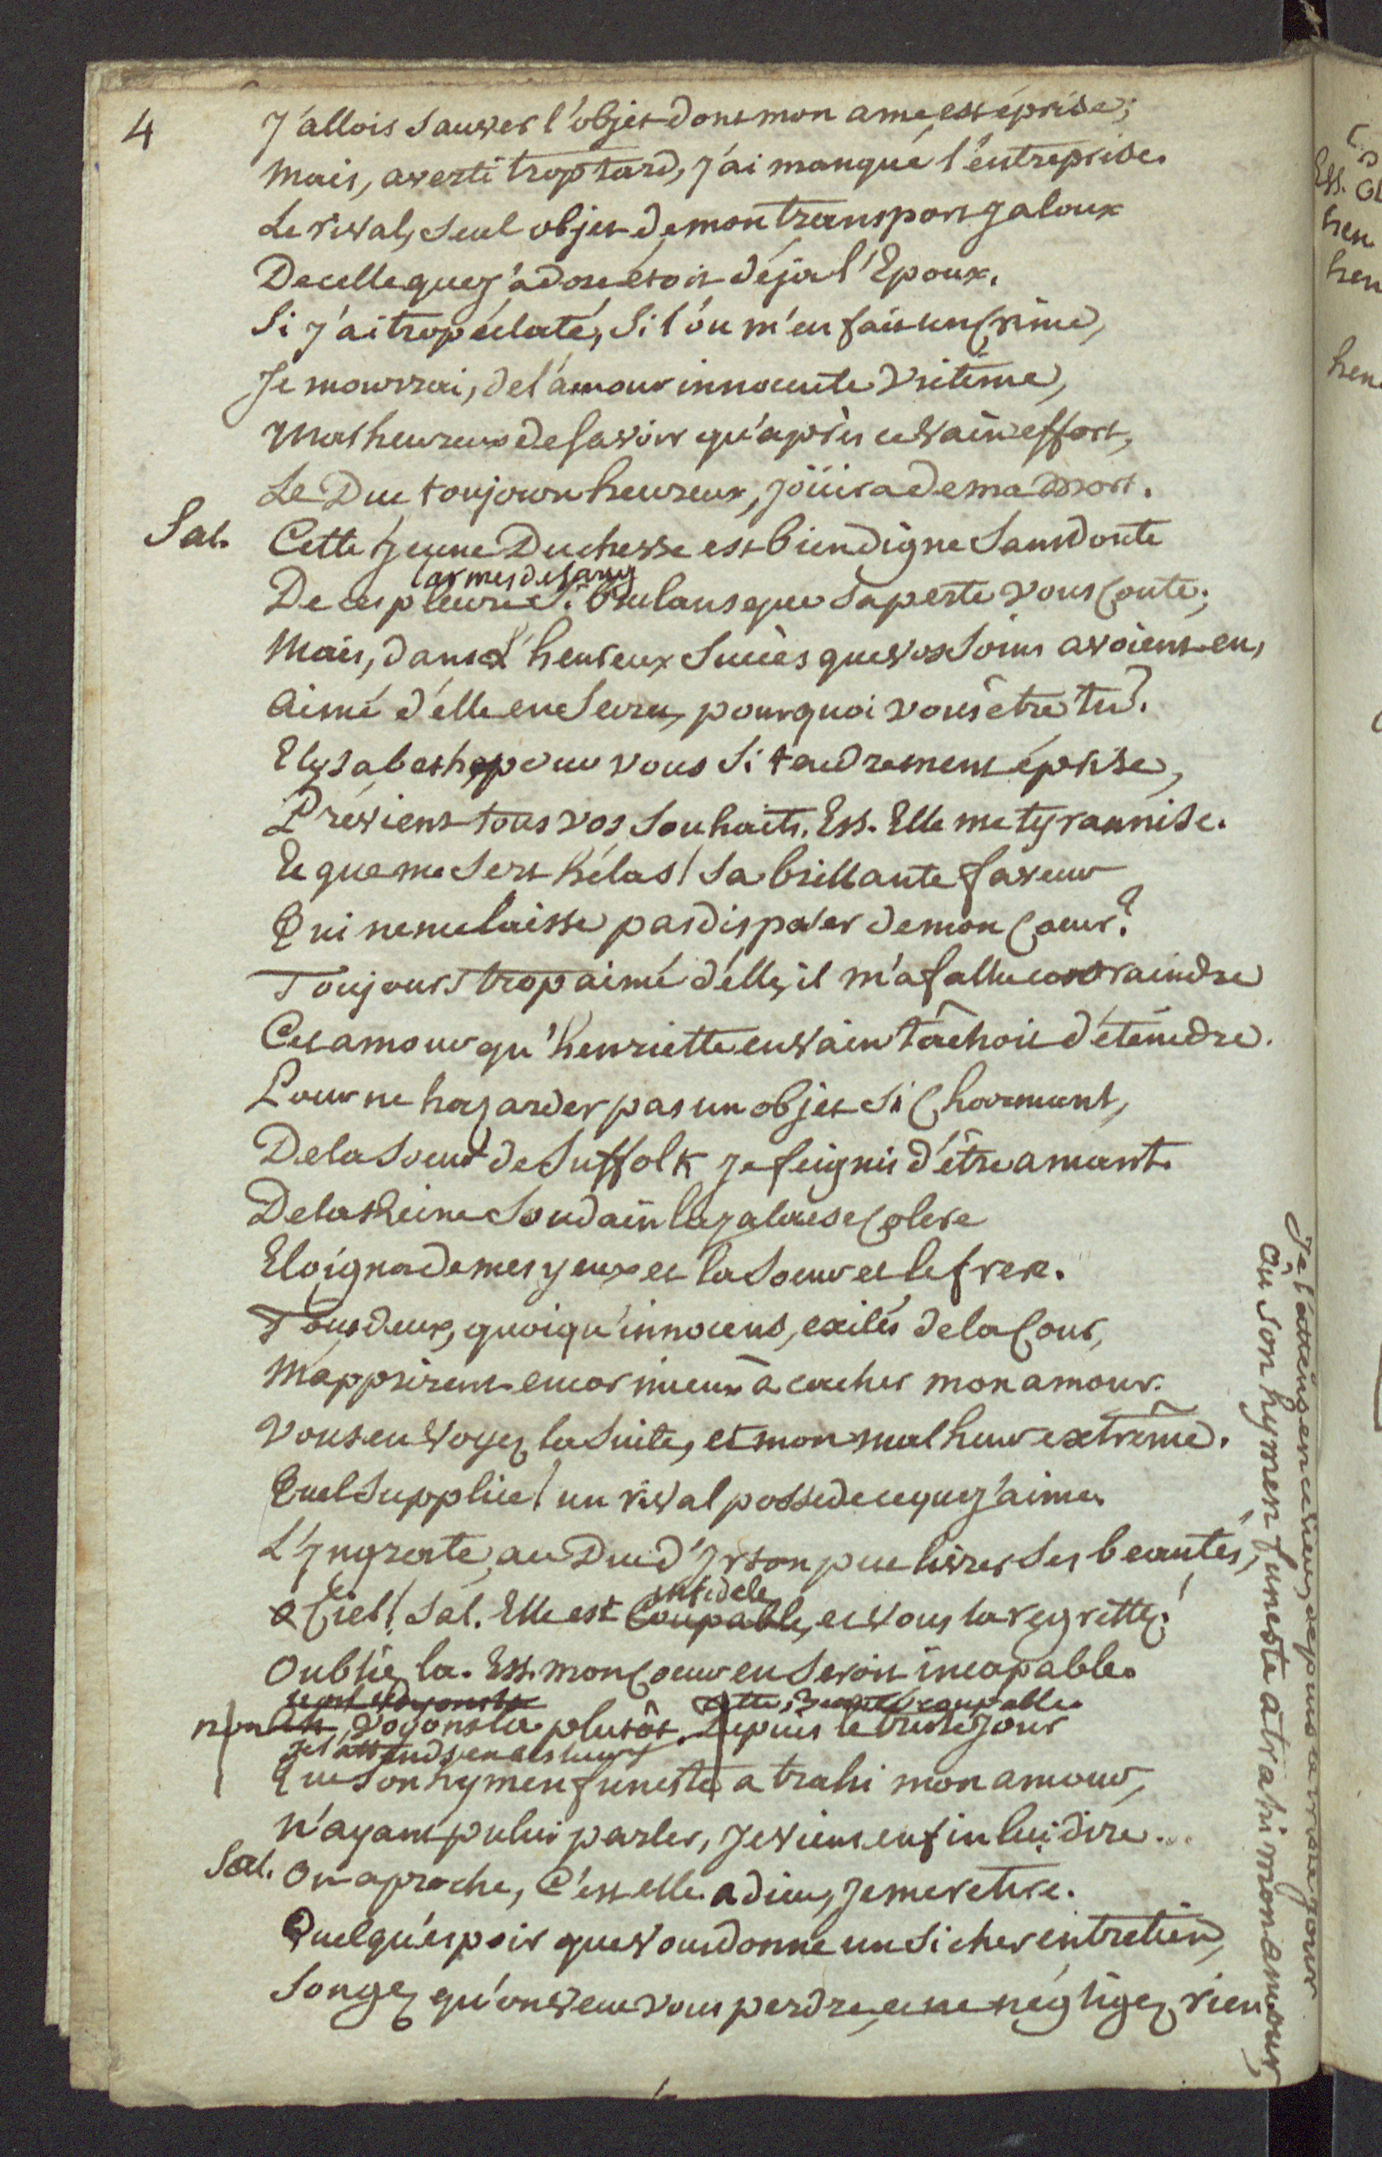 4
J'allois sauver l'objet dont mon ame est éprise;
Mais, averti trop tard, j'ai manqué l'entreprise.
Le rival, seul objet de mon transport jaloux
De celle que j'adore étoit déja l'Epoux.
Si j'ai trop éclaté, si l'on m'en fait un Crime,
Je mourrai, de l'amour innocente victime,
Malheureux de savoir qu'après ce vain effort,
Le Duc toujours heureux, joüira de ma mort.
Sal. Cette jeune Duchesse est bien digne sans doute
larmes de sang
De ces pleurs si brulans que sa perte vous Coute;
Mais, dans l'heureux Succès que vos soins avoient eu,
Aimé d'elle en secret, pourquoi vous être tu?
Elysabeth, pour vous si tendrement éprise,
Prévient tous vos souhaits. Ess. Elle me tyrannise.
Et que me sert hélas! sa brillante faveur
Qui ne me laisse pas disposer de mon Coeur?
Toujours trop aimé d'elle, il m'a fallu contraindre
Cet amour qu'henriette en vain tâchoit d'éteindre.
Pour ne hazarder pas un objet si Charmant,
De la soeur de Suffolk je feignis d'être amant.
De la Reine soudain la jalouse Colere
Eloigna de mes yeux et la soeur et le frere.
Tous deux, quoiqu'innocens, exilés de la Cour,
M'apprirent encor mieux à cacher mon amour.
Vous en voyez la suite, et mon malheur extrême.
Quel supplice! un rival possede ce que j'aime.
L'Ingrate, au Duc d'Irton put livrer ses beautés,
infidele
O Ciel! Sal. Elle est Coupable, et vous la regrettez!
Oubliez la. Ess. mon Coeur en seroit incapable.
non voyons la plutôt. depuis le triste jour
je l'attends en ces lieux
Que son hymen funeste a trahi mon amour,
N'ayant pu lui parler, je viens enfin lui dire...
Sal. On aproche, C'est elle. adieu, je me retire.
Quelqu'espoir que vous donne un si cher entretien,
Songez qu'on veut vous perdre, et ne négligez rien
Je l'attens en ces lieux, depuis ce triste jour
Où son hymen funeste a trahi mon amour,
Ess.
hen
hen
hen